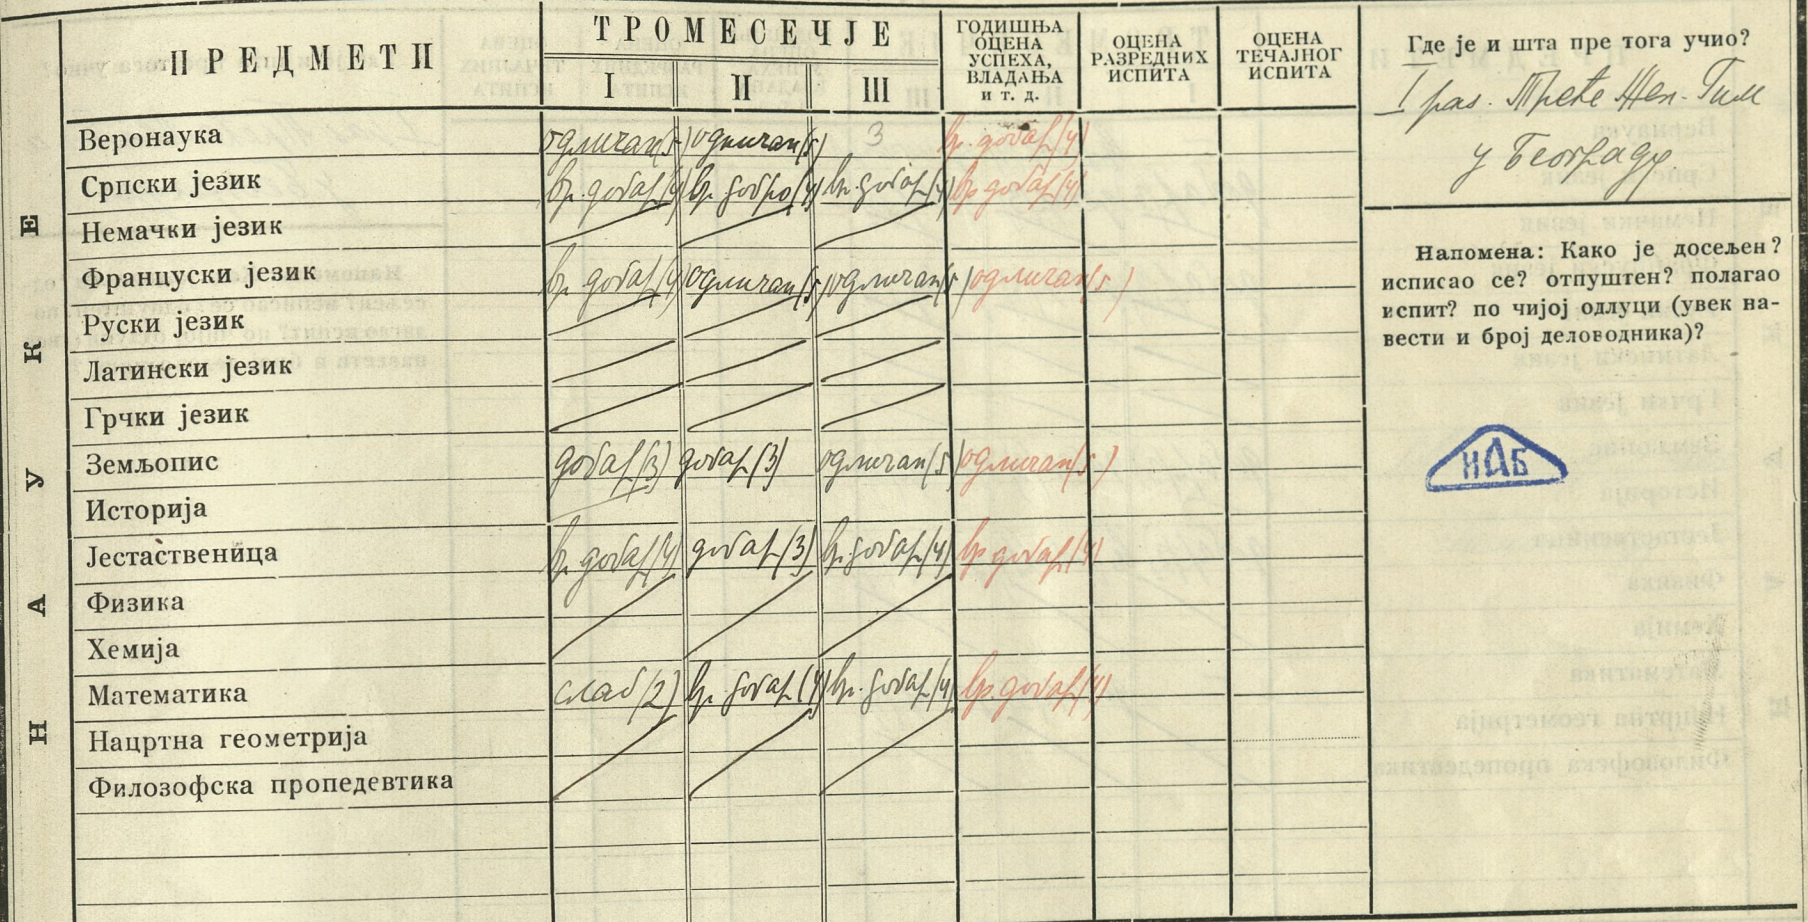 ПРЕДМЕТИ
ТРОМЕСЕЧЈЕ
I II III
ГОДИШЊА
ОЦЕНА
УСПЕХА,
ВЛАДАЊА
и т. д.
ОЦЕНА
РАЗРЕДНИХ
ИСПИТА
ОЦЕНА
ТЕЧАЈНОГ
ИСПИТА
НАУКЕ
Веронаука одличан(5) одличан(5) 3 вр. добар(4)
Српски језик вр. добар(4) вр. добро(4) вр. добар(4) вр. добар(4)
Немачки језик
Француски језик вр. добар(4) одличан(5) одличан(5) одличан(5)
Руски језик
Латински језик
Грчки језик
Земљопис добар(3) добар(3) одличан(5) одличан(5)
Историја
Јестаственица вр. добар(4) добар(3) вр. добар(4) вр. добар(4)
Физика
Хемија
Математика слаб(2) вр. добар(4) вр. добар(4) вр. добар(4)
Нацртна геометрија
Филозофска пропедевтика
Где је и шта пре тога учио?
I раз. Треће Жен. Гим
у Београду
Напомена: Како је досељен?
исписао се? отпуштен? полагао
испит? по чијој одлуци (увек на-
вести и број деловодника)?
ИАБ